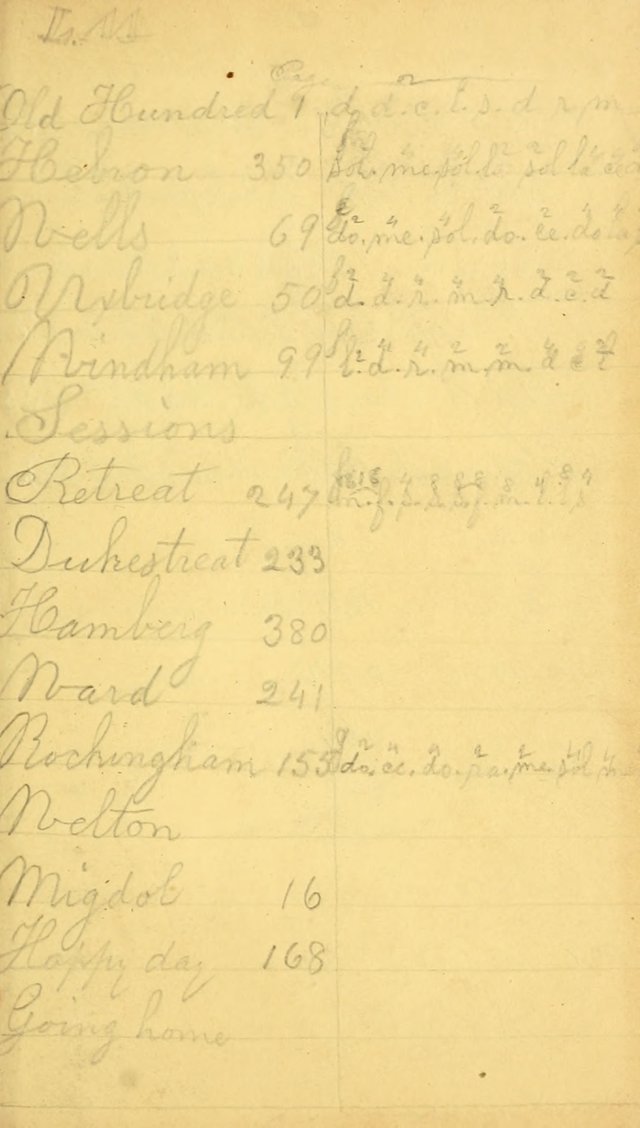 L. M.
Page
Old Hundred 1 d. d. c. l. s. d r m
Hebron 350 sol. me. sol. la sol la ce
Wells 69 do. me. sol. do. ce. do la
Uxbridge 50 d. d. r. m. r. d. c. d
Windham 99 l. d. r. m. m. d c l
Sessions
Retreat 247
Dukestreat 233
Hamberg 380
Ward 241
Rockingham 155 do. ce. do. ra. me. sol m
Welton
Migdol 16
Happy day 168
Going home